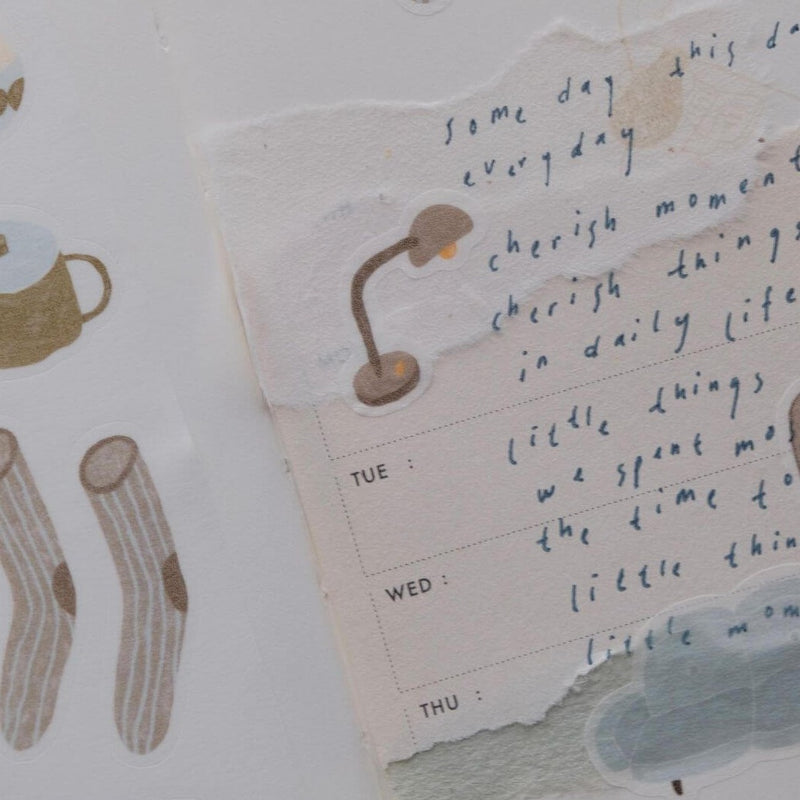 some day this da
everyday
cherish moment
cherish things
in daily life
little things
TUE :
we spent mos
the time to
WED :
little thin
little mom
THU :